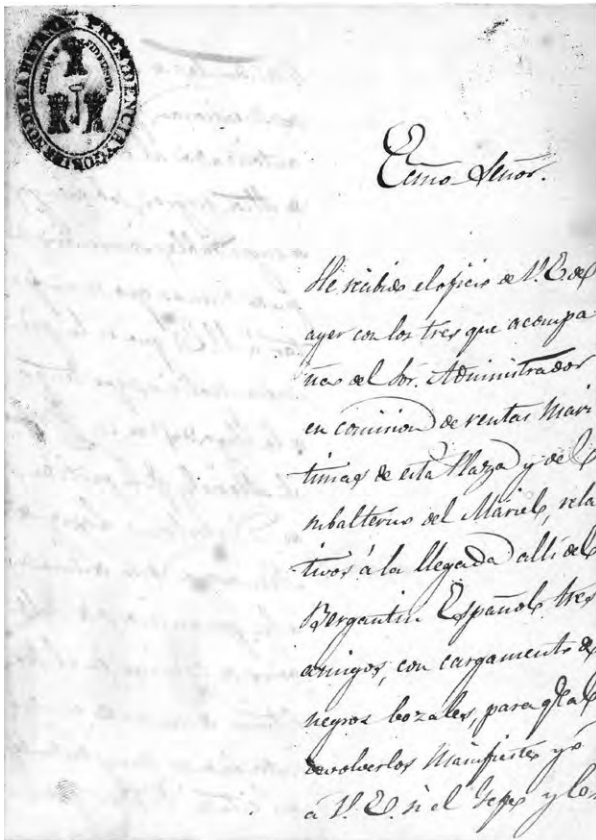 PRESIDENCIA GOBIERNO DE LA HABANA
Ecmo Señor.
He recibido el oficio de V. E. de
ayer con los tres que acompa
ñas del Sor. Administrador
en comision de rentas Mari
timas de esta Plaza y del
subalterno del Mariel, rela
tivos á la llegada alli del
Bergantin Español tres
amigos, con cargamento de
negros bozales, para q̃ al
devolverlos manifieste yo
á V. E. si el Gefe y los